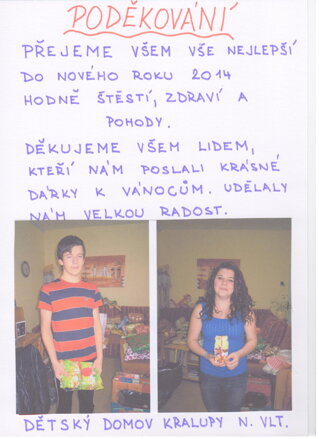 PODĚKOVÁNÍ
PŘEJEME VŠEM VŠE NEJLEPŠÍ
DO NOVÉHO ROKU 2014
HODNĚ ŠTĚSTÍ, ZDRAVÍ A
POHODY.
DĚKUJEME VŠEM LIDEM,
KTEŘÍ NÁM POSLALI KRÁSNÉ
DÁRKY K VÁNOCŮM. UDĚLALY
NÁM VELKOU RADOST.
DĚTSKÝ DOMOV KRALUPY N. VLT.